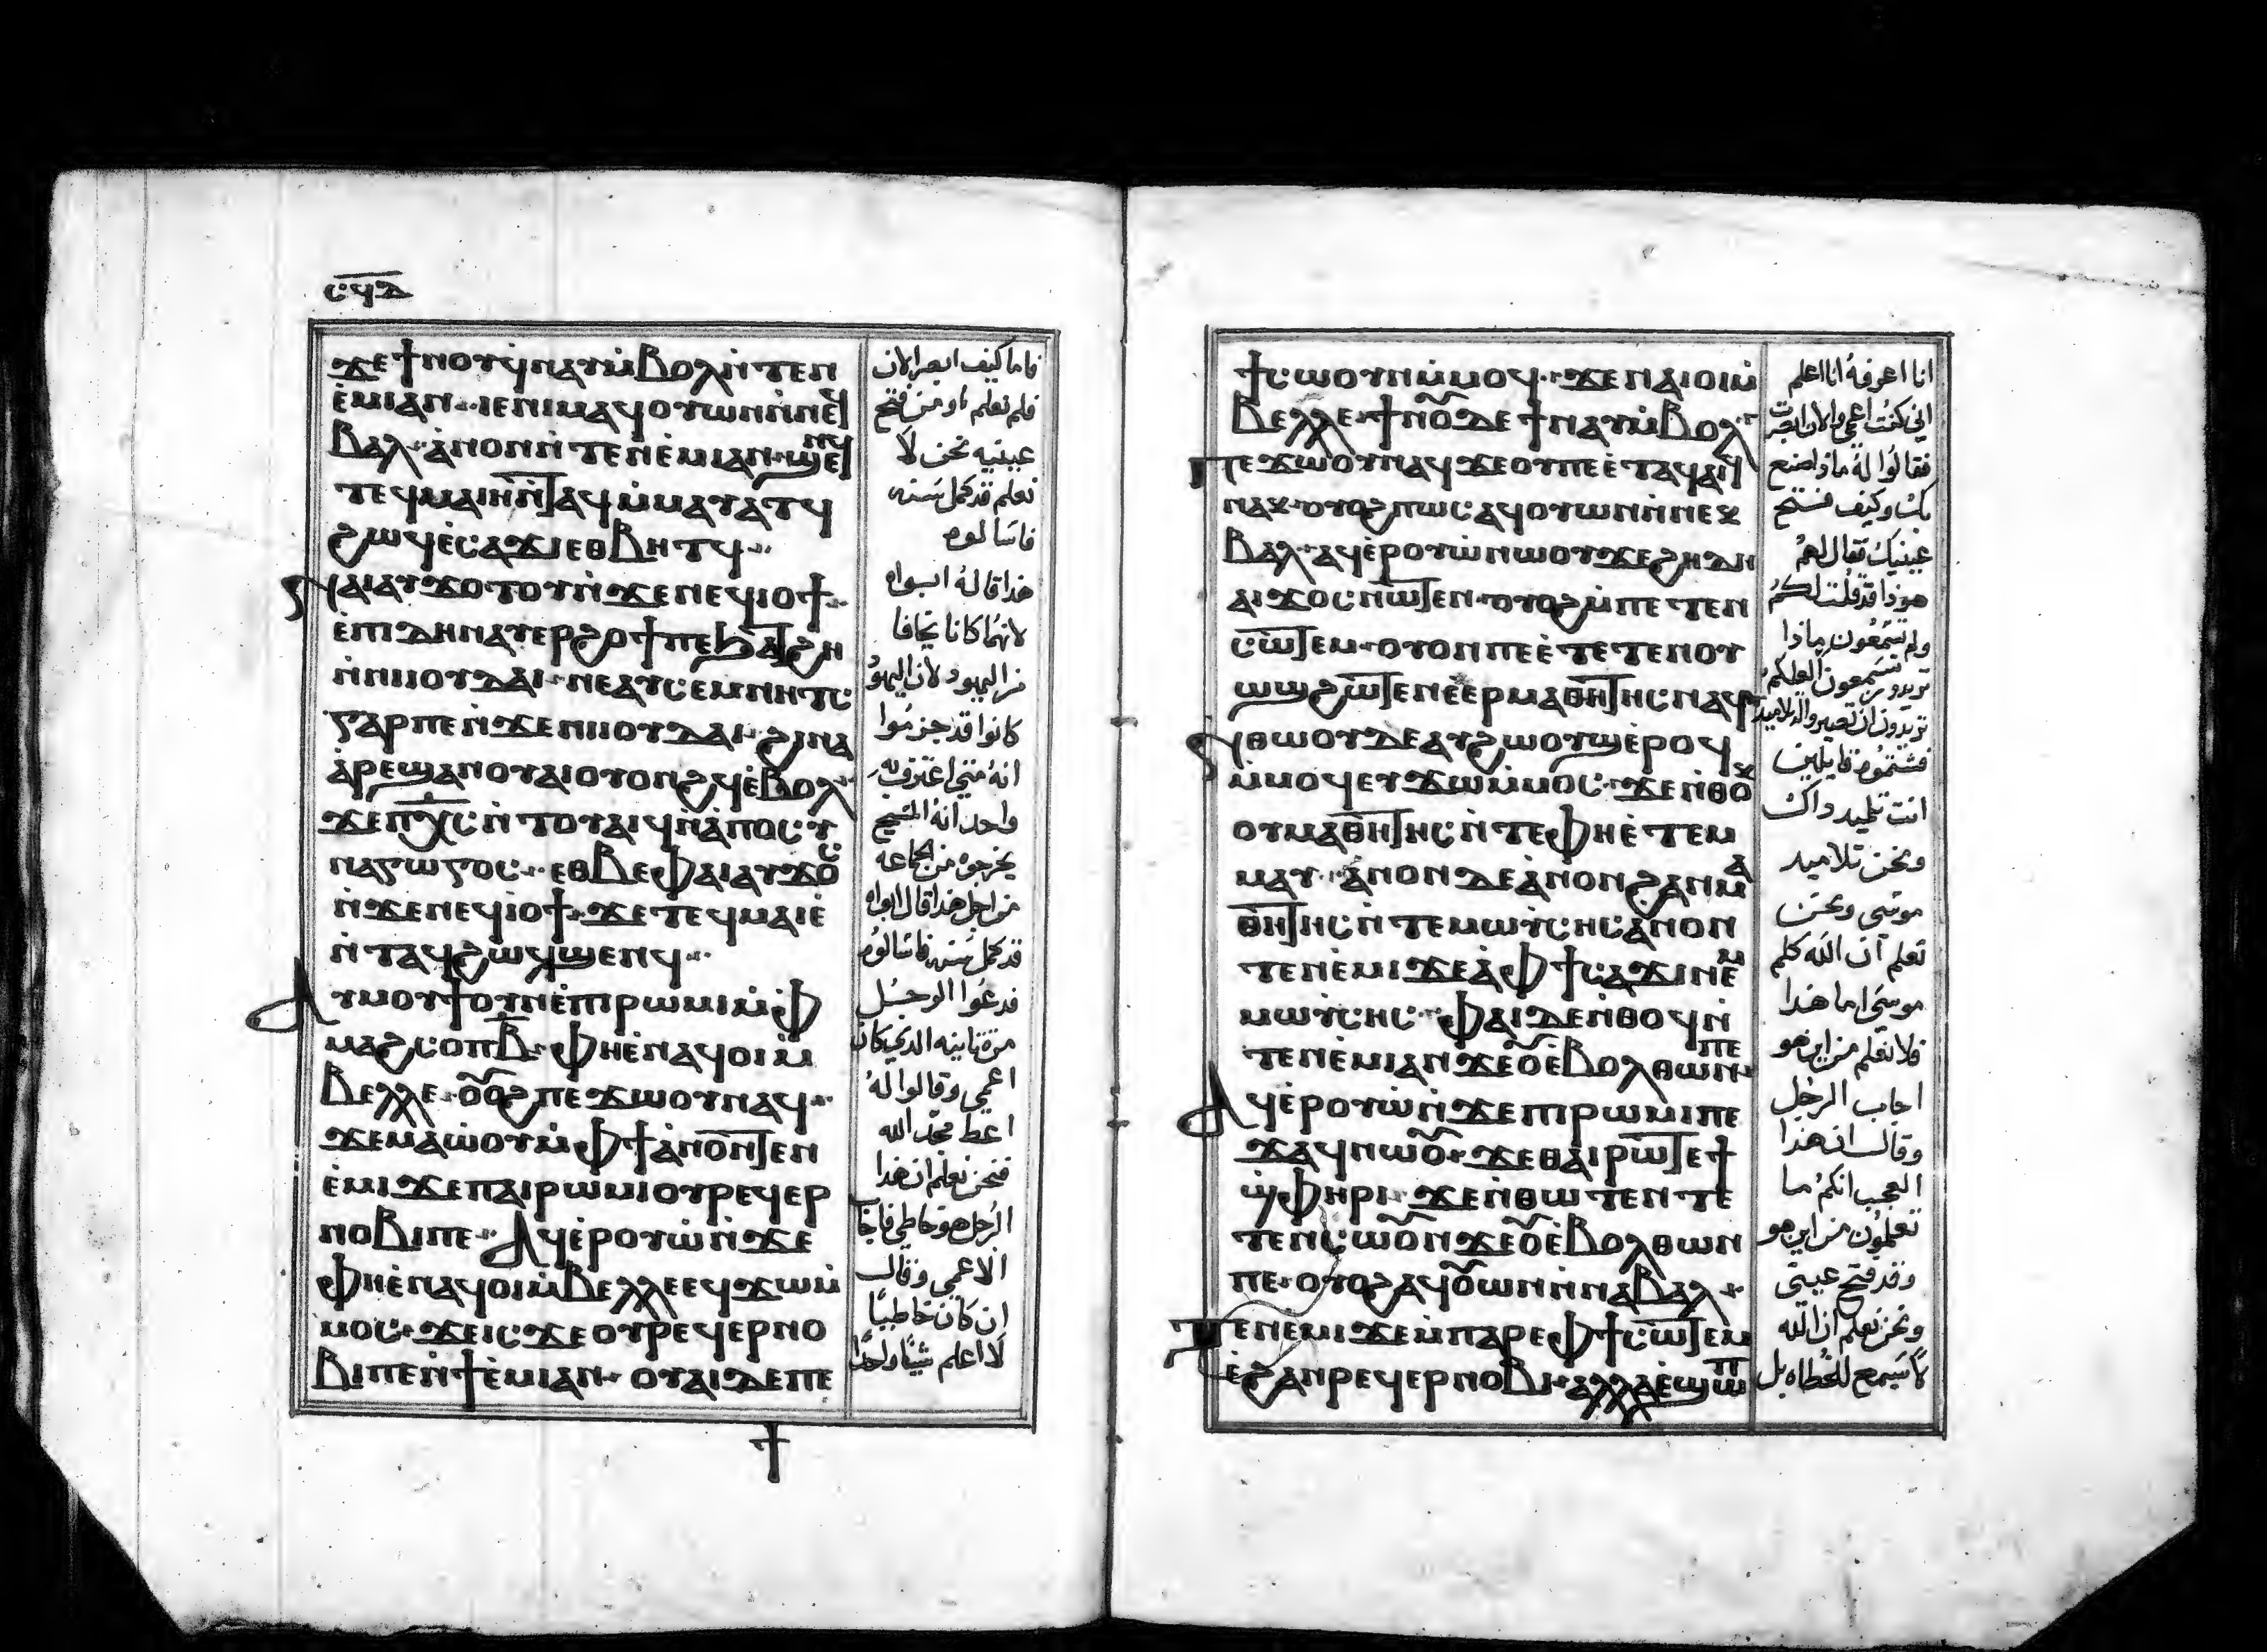 ⲥϥⲇ
ϫⲉϯⲛⲟⲩϥⲛⲁⲩⲙ̀ⲃⲟⲗⲛ̀ⲧⲉⲛ
ⲉ̀ⲙⲓⲁⲛ·ⲓⲉⲛⲓⲙⲁϥⲟⲩⲱⲛⲛ̀ⲛⲉϥ
ⲃⲁⲗ·ⲁ̀ⲛⲟⲛⲛ̀ⲧⲉⲛⲉ̀ⲙⲓⲁⲛ·ϣⲉⲛϥ
ⲧⲉϥⲙⲁⲓⲏⲛ̀ⲧⲁϥⲙ̀ⲙⲁⲩⲁⲧϥ
ϩⲱϥⲉ̀ⲥⲁϫⲓⲉⲑⲃⲏⲧϥ··
ⲫⲁⲓⲁⲩϫⲟⲧⲟⲩⲛ̀ϫⲉⲛⲉϥⲓⲟϯ··
ⲉ̀ⲡⲓⲇⲏⲛⲁⲩⲉⲣϩⲟϯⲡⲉϧⲁⲧϩⲏ
ⲛ̀ⲛⲓⲓⲟⲩⲇⲁⲓ·ⲛⲉⲁⲩⲥⲉⲙⲛⲏⲧⲥ
ⲅⲁⲣⲡⲉⲛ̀ϫⲉⲛⲓⲓⲟⲩⲇⲁⲓ·ϩⲓⲛⲁ
ⲁ̀ⲣⲉϣⲁⲛⲟⲩⲁⲓⲟⲩⲟⲛϩϥⲉ̀ⲃⲟⲗ
ϫⲉⲡⲭ̅ⲥ̅ⲛ̀ⲧⲟⲩⲁⲓϥⲛⲁ̀ⲡⲟⲥⲩ
ⲛⲁⲅⲱⲅⲟⲥ··ⲉⲑⲃⲉⲫⲁⲓⲁⲩϫⲟⲥ
ⲛ̀ϫⲉⲛⲉϥⲓⲟϯ·ϫⲉⲧⲉϥⲙⲁⲓⲉ̀
ⲛ̀ⲧⲁϥϩⲱϥϣⲉⲛϥ··
ⲁⲩⲙⲟⲩϯⲟⲩⲛⲉ̀ⲡⲓⲣⲱⲙⲓⲙ̀ⲫ
ⲙⲁϩⲥⲟⲡⲃ̅·ⲫⲏⲉ̀ⲛⲁϥⲟⲓⲙ̀
ⲃⲉⲗⲗⲉ·ⲟⲟ̃ϩⲡⲉϫⲱⲟⲩⲛⲁϥ··
ϫⲉⲙⲁⲱ̀ⲟⲩⲙ̀ⲫϯⲁ̀ⲛⲟⲛⲧⲉⲛ
ⲉ̀ⲙⲓϫⲉⲡⲁⲓⲣⲱⲙⲓⲟⲩⲣⲉϥⲉⲣ
ⲛⲟⲃⲓⲡⲉ·ⲁϥⲉ̀ⲣⲟⲩⲱ̀ⲛ̀ϫⲉ
ⲫⲏⲉ̀ⲛⲁϥⲟⲓⲙ̀ⲃⲉⲗⲗⲉⲉϥϫⲱⲙ̀
ⲙⲟⲥ·ϫⲉⲓⲥϫⲉⲟⲩⲣⲉϥⲉⲣⲛⲟ
ⲃⲓⲡⲉⲛ̀ϯⲉ̀ⲙⲓⲁⲛ·ⲟⲩⲁⲓⲇⲉⲡⲉ
فاما كيف ابصر الان
فلم نعلم او من فتح
عينيه نحن لا
نعلم قد كمل سنه
فاسالوه
هذا قاله ابواه
لانهما كانا يخافا
من اليهود لان اليهود
كانوا قد جزموا
انه متى اعترف به
واحد انه المسيح
يخرجوه من الجماعه
من اجل هذا قال ابواه
قد كمل سنه فاسالوه
فدعوا الرجل
مرة ثانيه الذي كان
اعمي وقالوا له
اعط مجد الله
فنحن نعلم ان هذا
الرجل هو خاطي فاجاب
الاعمي وقال
ان كان خاطيًا
لا اعلم شيًا واحدًا
ϯⲥⲱⲟⲩⲛⲙ̀ⲙⲟϥ··ϫⲉⲛⲁⲓⲟⲓⲙ̀
ⲃⲉⲗⲗⲉ·ϯⲛⲟ̃ⲇⲉϯⲛⲁⲩⲙ̀ⲃⲟⲗ
ⲡⲉϫⲱⲟⲩⲛⲁϥϫⲉⲟⲩⲡⲉⲉ̀ⲧⲁϥⲁⲓϥ
ⲛⲁⲕ·ⲟⲩⲟϩⲡⲱⲥⲁϥⲟⲩⲱⲛⲛ̀ⲛⲉⲕ
ⲃⲁⲗ·ⲁϥⲉ̀ⲣⲟⲩⲱ̀ⲛⲱⲟⲩϫⲉϩⲏⲇⲏ
ⲁⲓϫⲟⲥⲛⲱⲧⲉⲛ·ⲟⲩⲟϩⲙ̀ⲡⲉⲧⲉⲛ
ⲥⲱⲧⲉⲙ·ⲟⲩⲟⲛⲡⲉⲉ̀ⲧⲉⲧⲉⲛⲟⲩ
ⲱϣϩⲱⲧⲉⲛⲉ̀ⲉⲣⲙⲁⲑⲏⲧⲏⲥⲛⲁϥ
ⲛ̀ⲑⲱⲟⲩⲇⲉⲁⲩϩⲱⲟⲩϣⲉ̀ⲣⲟϥ
ⲙ̀ⲙⲟϥⲉⲩϫⲱⲙ̀ⲙⲟⲥ·ϫⲉⲛ̀ⲑⲟⲕ
ⲟⲩⲙⲁⲑⲏⲧⲏⲥⲛ̀ⲧⲉⲫⲏⲉ̀ⲧⲉⲙ
ⲙⲁⲩ·ⲁ̀ⲛⲟⲛⲇⲉⲁ̀ⲛⲟⲛϩⲁⲛⲙⲁ
ⲑⲏⲧⲏⲥⲛ̀ⲧⲉⲙⲱⲩ̀ⲥⲏⲥⲁ̀ⲛⲟⲛ
ⲧⲉⲛⲉ̀ⲙⲓϫⲉⲁ̀ⲫϯⲥⲁϫⲓⲛⲉⲙ
ⲙⲱⲩ̀ⲥⲏⲥ·ⲫⲁⲓⲇⲉⲛ̀ⲑⲟϥⲛ̀
ⲧⲉⲛⲉ̀ⲙⲓⲁⲛϫⲉⲟ̃ⲉ̀ⲃⲟⲗⲑⲱⲛⲡⲉ
ⲁϥⲉ̀ⲣⲟⲩⲱ̀ⲛ̀ϫⲉⲡⲓⲣⲱⲙⲓⲡⲉ
ϫⲁϥⲛⲱⲟ̃·ϫⲉⲑⲁⲓⲣⲱⲧⲉϯ
ϣ̀ⲫⲏⲣⲓ·ϫⲉⲛ̀ⲑⲱⲧⲉⲛⲧⲉ
ⲧⲉⲛⲥⲱⲟ̃ⲛϫⲉⲟ̃ⲉ̀ⲃⲟⲗⲑⲱⲛ
ⲡⲉ·ⲟⲩⲟϩⲁϥⲟ̃ⲱⲛⲛ̀ⲛⲁⲃⲁⲗ·
ⲧⲉⲛⲉⲙⲓϫⲉⲙ̀ⲡⲁⲣⲉⲫϯⲥⲱⲧⲉⲙ
ⲉ̀ϩⲁⲛⲣⲉϥⲉⲣⲛⲟⲃⲓ·ⲁⲗⲗⲁⲉ̀ϣⲱⲡ
انا اعرفه انا اعلم
اني كنت اعمي والان ابصرت
فقالوا له ماذا صنع
بك وكيف فتح
عينيك فقال لهم
هوذا قد قلت لكم
ولم تسمعون ماذا
تريدون تسمعون العلكم
تريدون ان تصيروا له تلاميد
فشتموه قايلين
انت تلميد داك
ونحن تلاميد
موسى ونحن
نعلم ان الله كلم
موسى اما هذا
فلا نعلم من اين هو
اجاب الرجل
وقال ان هذا
العجب انكم ما
تعلمون من اين هو
وقد فتح عينى
ونحن نعلم ان الله
لا يسمع للخطاه بل